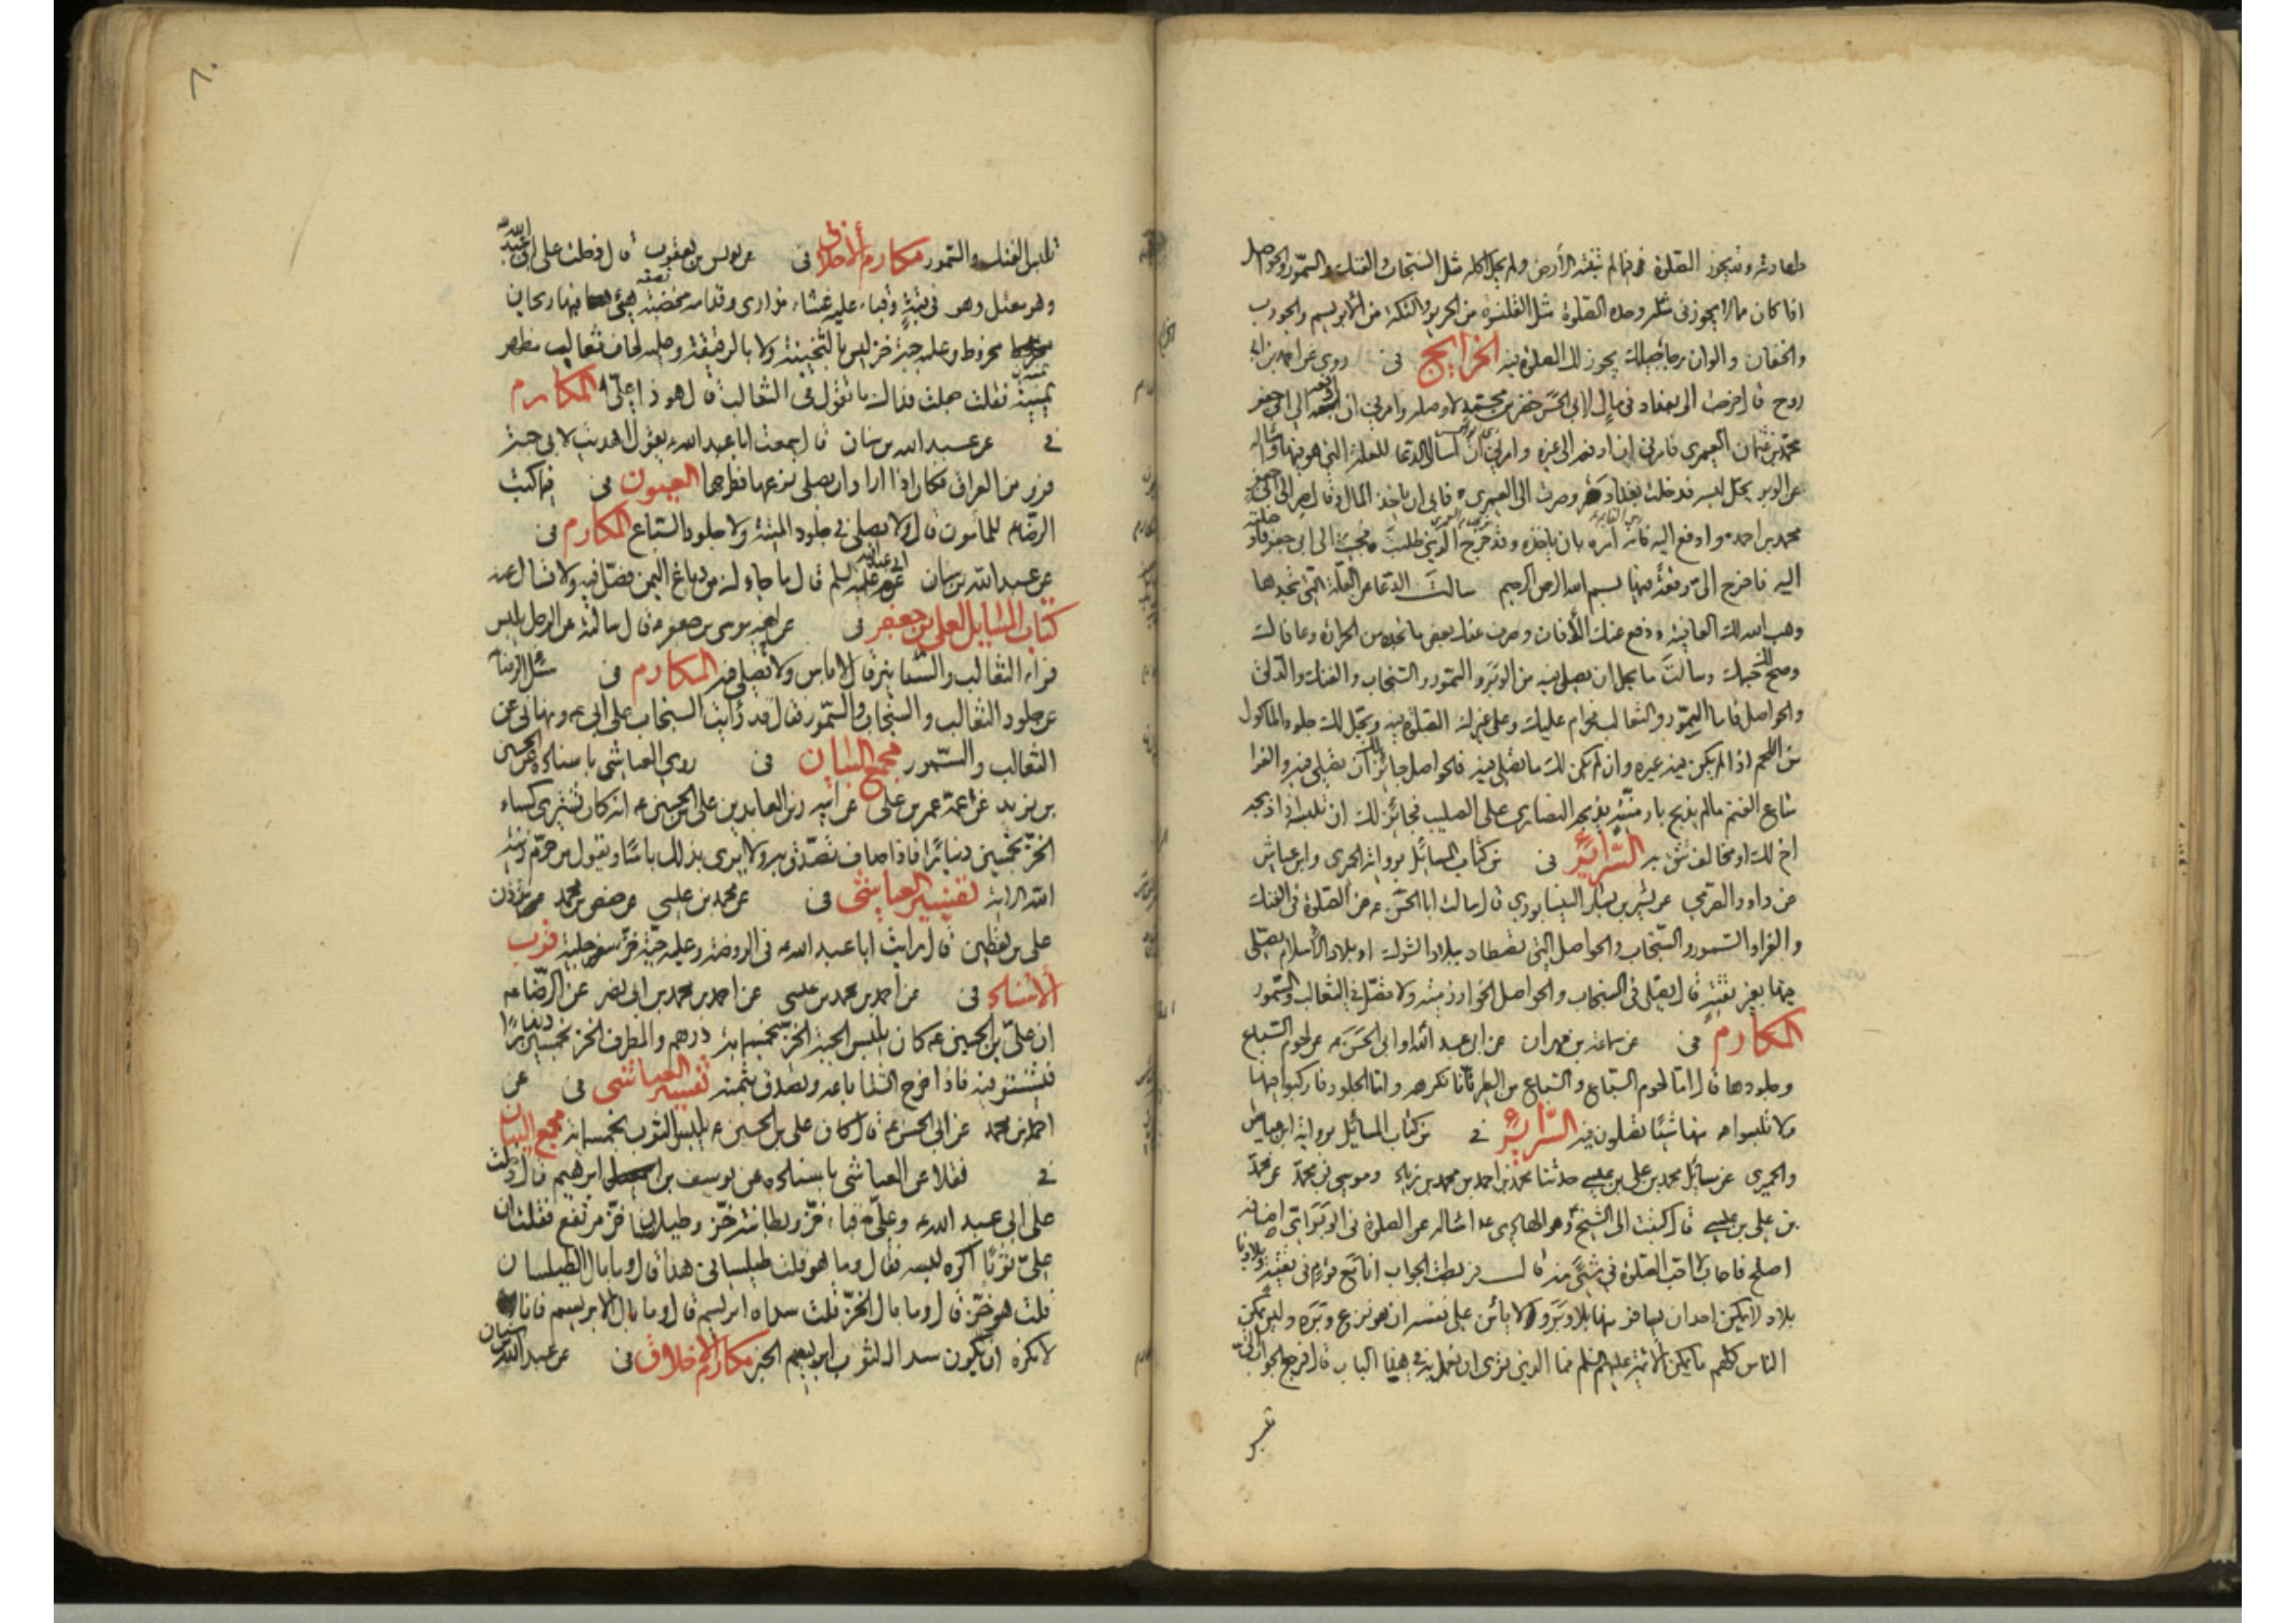 طهارته وقد يجوز الصلوة فيما لم تنبته الأرض ولم يحل اكله مثل السنجاب والفنك والسمور والحواصل
اذا كان مما لا يجوز في مثله وحده الصلوة مثل القلنسوة من الحرير والتكة من الابريسم والجورب
والخفان والوان رجاجيلك يجوز لك الصلوة فيه الخرايج في روى عن احمد بن ابى
روح قال خرجت الى بغداد في مال لابى الحسن خضر بن محمد لاوصله وامرني ان ادفعه الى ابي جعفر
محمد بن عثمان العمرى فامرني ان لا ادفعه الى غيره وامرني ان اسال الدعا للعلة التي هو فيها واساله
عن الوبر يحل لبسه فدخلت بغداد وصرت الى العمرى فابى ان ياخذ المال وقال صر الى ابى جعفر
محمد بن احمد وادفع اليه فانه امره بان ياخذه وقد خرج الذي طلبت فجئت الى ابى جعفر فاوصلته
اليه فاخرج الى رقعة فيها بسم الله الرحمن الرحيم سالت الدعا من العلة التي تجدها
وهب الله لك العافية ودفع عنك الآفات وصرف عنك بعض ما تجده من الحرارة وعافاك
وصح جسمك وسالت ما يحل ان يصلى فيه من الوبر والسمور والسنجاب والفنك والدلق
والحواصل فاما السمور والثعالب فحرام عليك وعلى غيرك الصلوة فيه ويحل لك جلود الماكول
من اللحم اذا لم يكن فيه غيره وان لم يكن لك ما تصلى فيه فالحواصل جائز لك ان تصلى فيه والفرا
متاع الغنم مالم يذبح بارمنية يذبحه النصارى على الصليب فجائز لك ان تلبسه اذا ذبحه
اخ لك او مخالف تثق به السرائر في من كتاب المسائل برواية الحميرى وابن عياش
عن داود الصرمي عن بشير بن بشار النيسابوري قال سالت ابا الحسن ع عن الصلوة في الفنك
والفرا والسمور والسنجاب والحواصل التي تصطاد ببلاد الشرك او بلاد الاسلام يصلى
فيها بغير تقية قال يصلى في السنجاب والحواصل الخوارزمية ولا تصل في الثعالب والسمور
المكارم في عن سماعة بن مهران عن ابي عبد الله او ابى الحسن ع عن لحوم السباع
وجلودها قال اما لحوم السباع والسباع من الطير فانا نكرهه واما الجلود فاركبوا فيها
ولا تلبسوا منها شيئا تصلون فيه السرائر في من كتاب المسائل برواية ابن عياش
والحميرى عن مسائل محمد بن على بن عيسى حدثنا محمد بن احمد بن محمد بن زياد وموسى بن محمد عن محمد
بن على بن عيسى قال كتبت الى الشيخ اساله عن الصلوة في الوبر اى اصنافه
اصلح فاجاب لا احب الصلوة في شئ منه قال فرددت الجواب انا مع قوم في تقية وبلادنا
بلاد لا يمكن احدا ان يسافر منها بلا وبر ولا يامن على نفسه ان هو نزع وبره وليس يمكن
الناس كلهم ما يمكن الائمة عليهم السلم فما الذي ترى ان نعمل به في هذا الباب قال فرجع الجواب الى
تلبس الفنك والسمور مكارم الأخلاق في عن يونس بن يعقوب قال دخلت على ابى عبد الله
وهو معتل وهو في قبة وقباء عليه غشاء مذارى وقدامه مخضبة هيئ فيها ريحان
مخروط وعليه جبة خز ليس بالثخينة ولا بالرقيقة وعليه لحاف ثعالب مظهر
يمنية فقلت جعلت فداك ما تقول في الثعالب قال هو ذا على المكارم
في عن عبد الله بن سنان قال سمعت ابا عبد الله ع يقول اهديت لابي جبة
فرو من العراق فكان اذا اراد ان يصلى نزعها فطرحها العيون في فيما كتب
الرضا ع للمأمون قال ولا يصلى في جلود الميتة ولا جلود السباع المكارم في
عن عبد الله بن سنان عن ابى عبد الله عليه السلم قال ما جاءك من دباغ اليمن فصل فيه ولا تسال عنه
كتاب المسايل لعلى بن جعفر في عن اخيه موسى بن جعفر ع قال سالته عن الرجل يلبس
فراء الثعالب والسنانير قال لا باس ولا تصلى فيه المكارم في سئل الرضا ع
عن جلود الثعالب والسنجاب والسمور فقال قد رأيت السنجاب على ابى ع ونهانى عن
الثعالب والسمور مجمع البيان في روى العياشي باسناده عن الحسين
بن زيد عن عمه عمر بن على عن ابيه زين العابدين على بن الحسين ع انه كان يشترى كساء
الخز بخمسين دينارا فاذا صاف تصدق به ولا يرى بذلك باسا ويقول من حرم زينة
الله الاية تفسير العياشي في عن محمد بن عيسى عن حفص بن محمد مؤذن
على بن يقطين قال رايت ابا عبد الله ع في الروضة وعليه جبة خز سفرجلية قرب
الأسناد في عن احمد بن محمد بن عيسى عن احمد بن محمد بن ابى نصر عن الرضا ع
ان على بن الحسين ع كان يلبس الجبة الخز بخمسمائة درهم والمطرف الخز بخمسين دينارا
فيشتو فيه فاذا خرج الشتا باعه وتصدق بثمنه تفسير العياشي في عن
احمد بن محمد عن ابى الحسن ع قال كان على بن الحسين ع يلبس الثوب بخمسمائة مجمع البيان
في نقلا عن العياشي باسناده عن يوسف بن ابرهيم قال دخلت
على ابى عبد الله ع وعلى قباء خز وبطانته خز وطيلسان خز مرتفع فقلت ان
على ثوبا اكره لبسه فقال وما هو قلت طيلسانى هذا قال وما بال الطيلسان
قلت هو خز قال وما بال الخز قلت سداه ابريسم قال وما بال الابريسم قال
لا نكره ان يكون سدا الثوب ابريسم الخبر مكارم الأخلاق في عن عبد الله بن سنان